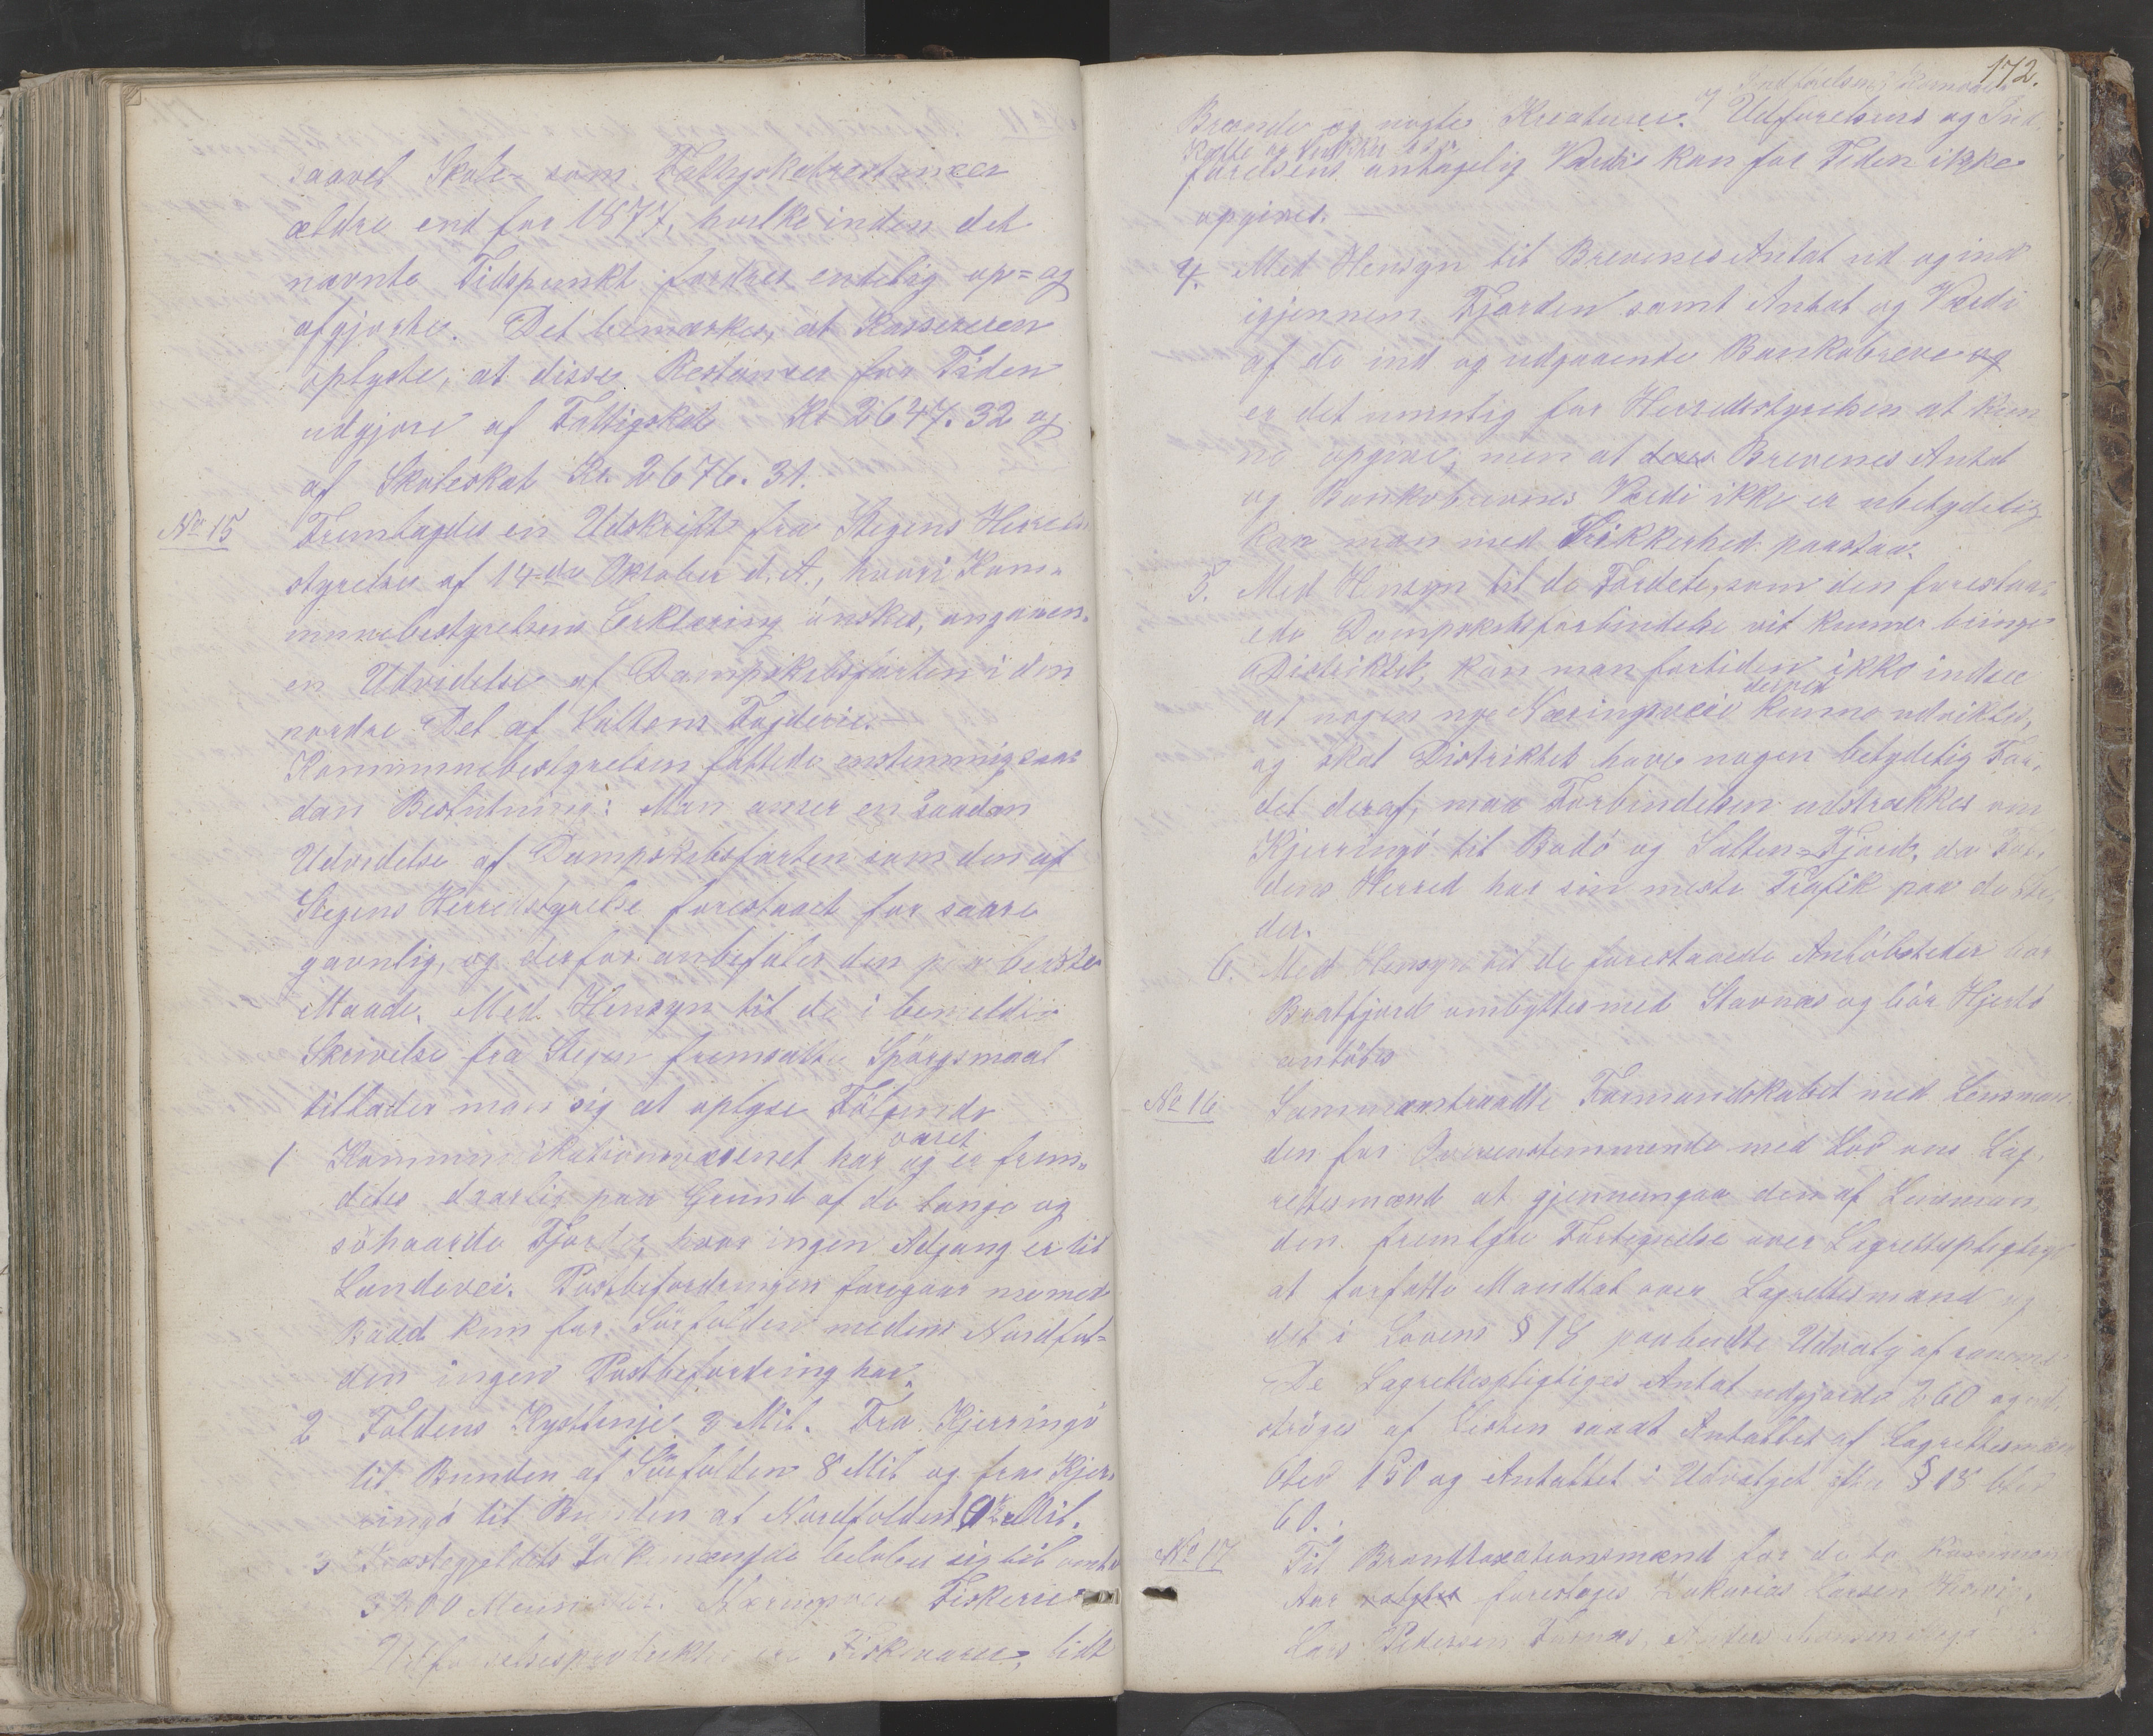 saavel Skole- som Fattigskatrestancer
ældre end for 1877, hvilke inden det
nævnte Tidspunkt fordres endelig op= og
afgjorte. Det bemærkes, at Kassereren
oplyste, at disse Restancer for Tiden
udgjøre af Fattigskat Kr 2647.32 og
af Skoleskat Kr. 2676.31.
No 15 Fremlagdes en Udskrift fra Stegens Herreds
styrelse af 14-de Oktober d.A., hvori Kom-
munebestyrelsens Erklæring ønskes, angaaen-
en Udvidelse af Dampskibsfarten i den
nordre Del af Saltens Fogderie. —
Kommunebestyrelsen fattede enstemmig saa-
dan Beslutning: Man anser en saadan
Udvidelse af Dampskibsfarten som den af
Stegens Herredstyrelse forestaaet for saare
gavnlig, og derfor anbefaler den paa bedste
Maade. Med Hensyn til de i bemeldte
Skrivelse fra Stegen fremsatte Spørgsmaal
tillader man sig at oplyse Følgende
1 Kommunikationsvæsenet har været og er frem-
deles daarlig paa Grund af de lange og
søhaarde Fjorde, hvor ingen Adgang er til
Landevei. Postbefordringen foregaar med
Baad kun for Sørfolden medens Nordfol=
den ingen Postbefordring har.
2 Foldens Kystlinje 3 Mil. Fra Kjerringø
til Bunden af Sørfolden 8 Mil og fra Kjer-
ringø til Bunden af Nordfolden Mil.
3 Præstegjeldets Folkemængde beløber sig til omtr
3200 Mennesker. Næringsveie Fiskerie
Udførselsprodukter ere Fiskevarer, lidt
172.
Indførelsens Kornvarer
Brænde og nogle Kreaturer. Udførelsens og Ind-
Kaffe og Sukker
førelsens antagelig Værdi kan for Tiden ikke
opgives. —
4. Med Hensyn til Brevenes Antal ud og ind
igjennem Fjorden samt Antal og Værdi
af de ind og udgaaende Bankobreve og
er det umulig for Herredstyrelsen at kun-
ne opgive, men at Brevenes Antal
og Bankobrevnes Værdi ikke er ubetydelig
kan man med Sikkerhed paastaa.
5. Med Hensyn til de Fordele, som den forestaa-
ede Dampskibsforbindelse vil kunne bringe
Distriktet, kan man fortiden ikke indsee
at nogen nye Næringsveie derved kunne udvikles,
og skal Distriktet have nogen betydelig For-
del deraf, maa Forbindelsen udstrækkes om
Kjerringø til Bodø og Salten-Fjord, da Fol-
dens Herred har sin meste Trafik paa de Ste-
der.
6. Med Hensyn til de forestaaede Anløbsteder bør
ombyttes med Stavnæs og bør Hjertø
anløbes
No 16 Sammentraadte Formandskabet med Lensman-
den for Overensstemmende med Lov om Lag-
rettesmænd at gjennemgaa den af Lensman-
den fremlgte Fortegnelse over Lagrettepligtige
at forfatte Mandtal over Lagrettesmænd og
det i Lovens § 18 paabudte Udvalg af samme
De Lagrettespligtiges Antal udgjorde 260 og
ströges af Listen saaat Antallet af Lagrettesmænd
blev 150 og Antallet i Udvalget efter § 18 blev
60.
No 17 Til Brandtaxationsmænd for de to kommende
Aar valgtes forestages Zakarias Larsen
Lars Pedersen Anders